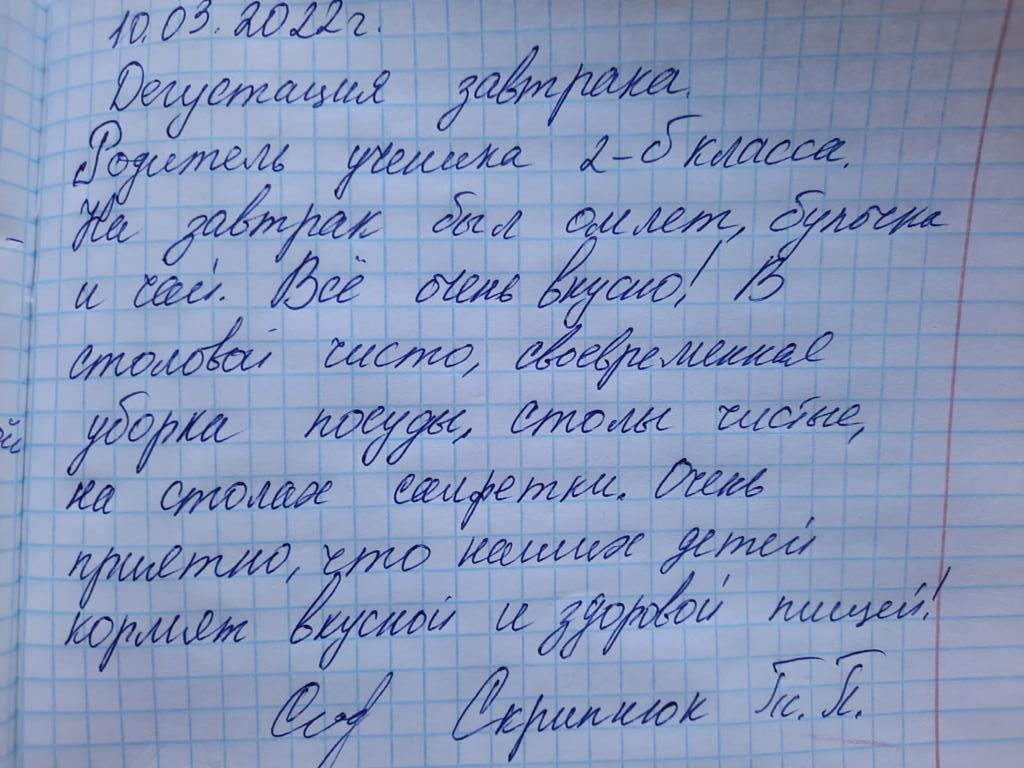 10.03.2022г.
Дегустация завтрака.
Родитель ученика 2-б класса.
На завтрак был омлет, булочка
и чай. Всё очень вкусно! В
столовой чисто, своевременная
уборка посуды, столы чистые,
на столах салфетки. Очень
приятно, что наших детей
кормят вкусной и здоровой пищей!
Скрипнюк П.